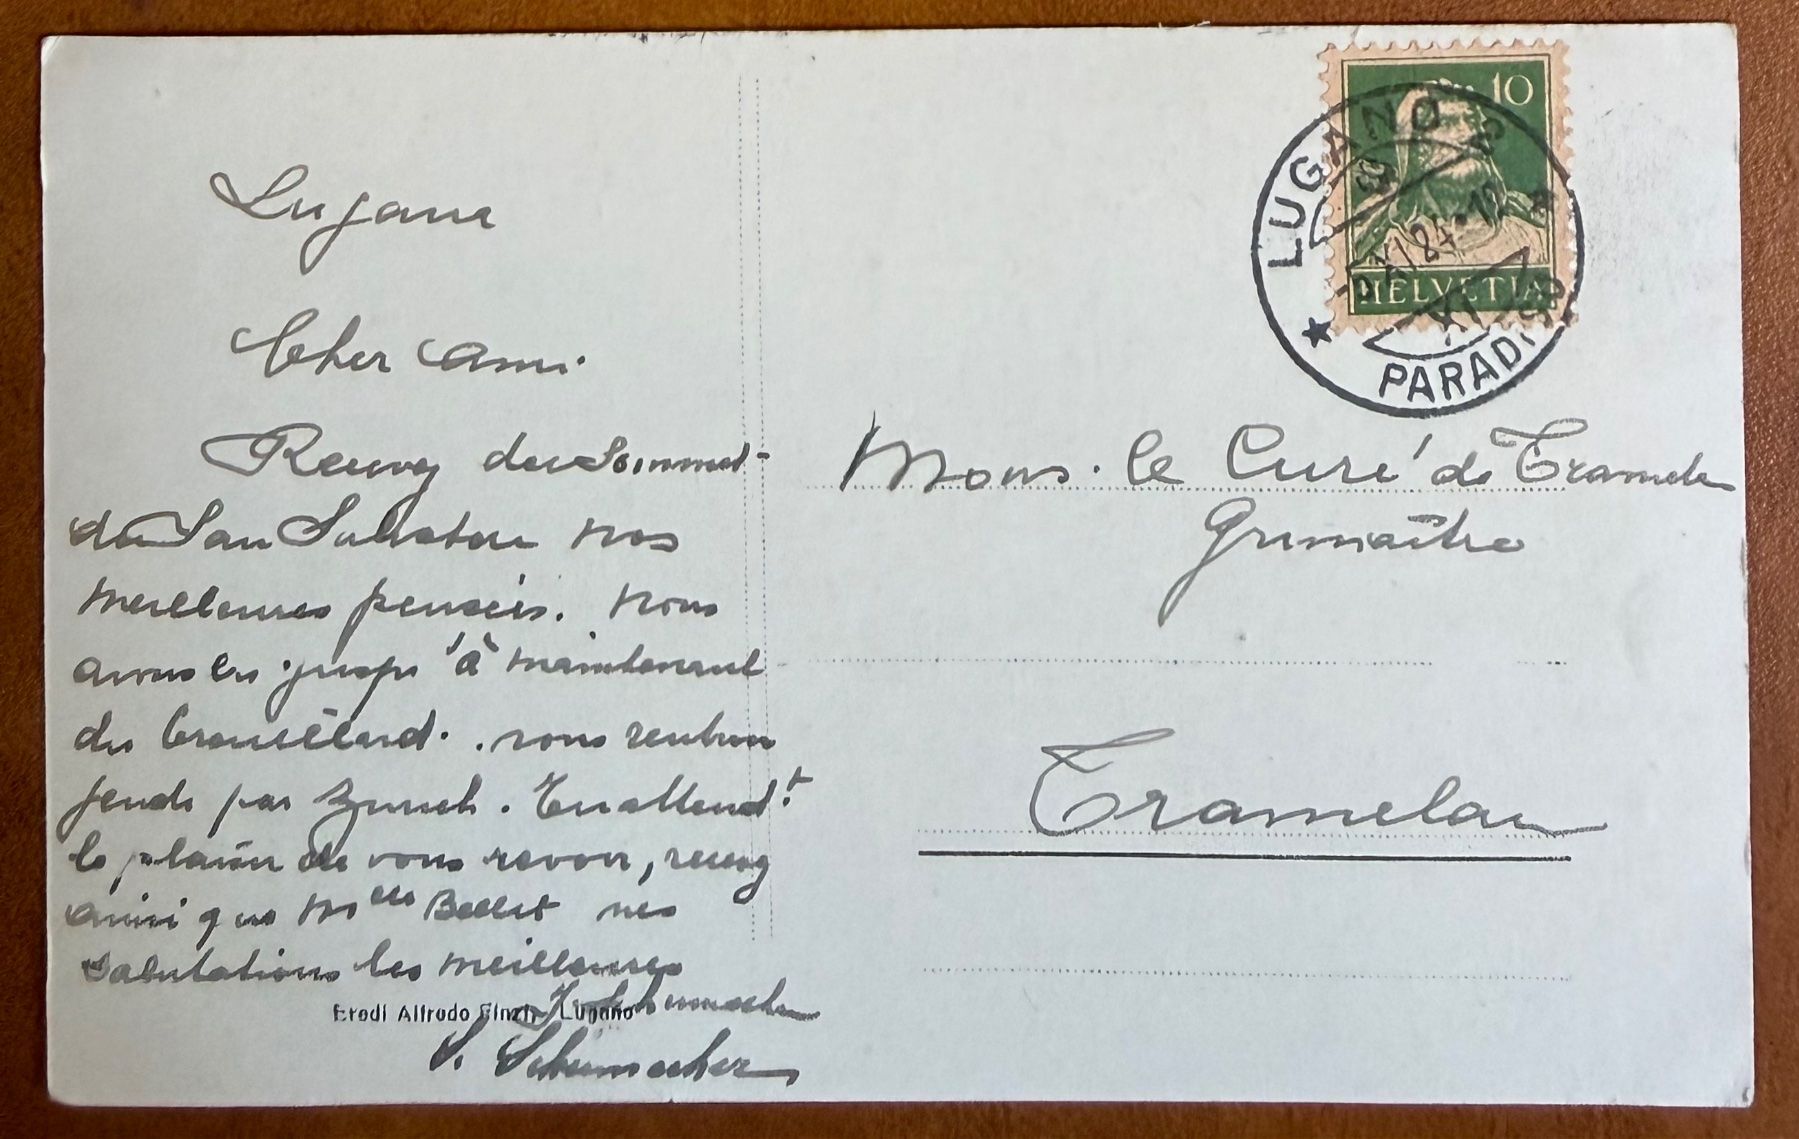 Lugano
Cher Ami
Recevez du Sommet
du San Salvatore nos
meilleures pensées. Nous
avons eu jusqu'à maintenant
du brouillard. nous rentrons
jeudi par Zurich. En attend.t
le plaisir de vous revoir, recevez
ainsi que Mlle Bellet nes
salutations les meilleures
Schumacher
S. Schumacher
Eredi Alfredo Finzi, Lugano
10
HELVETIA
LUGANO 2
XI 24 - 12
PARADISO
Mons. le Curé de Tramelan
Grimaître
Tramelan